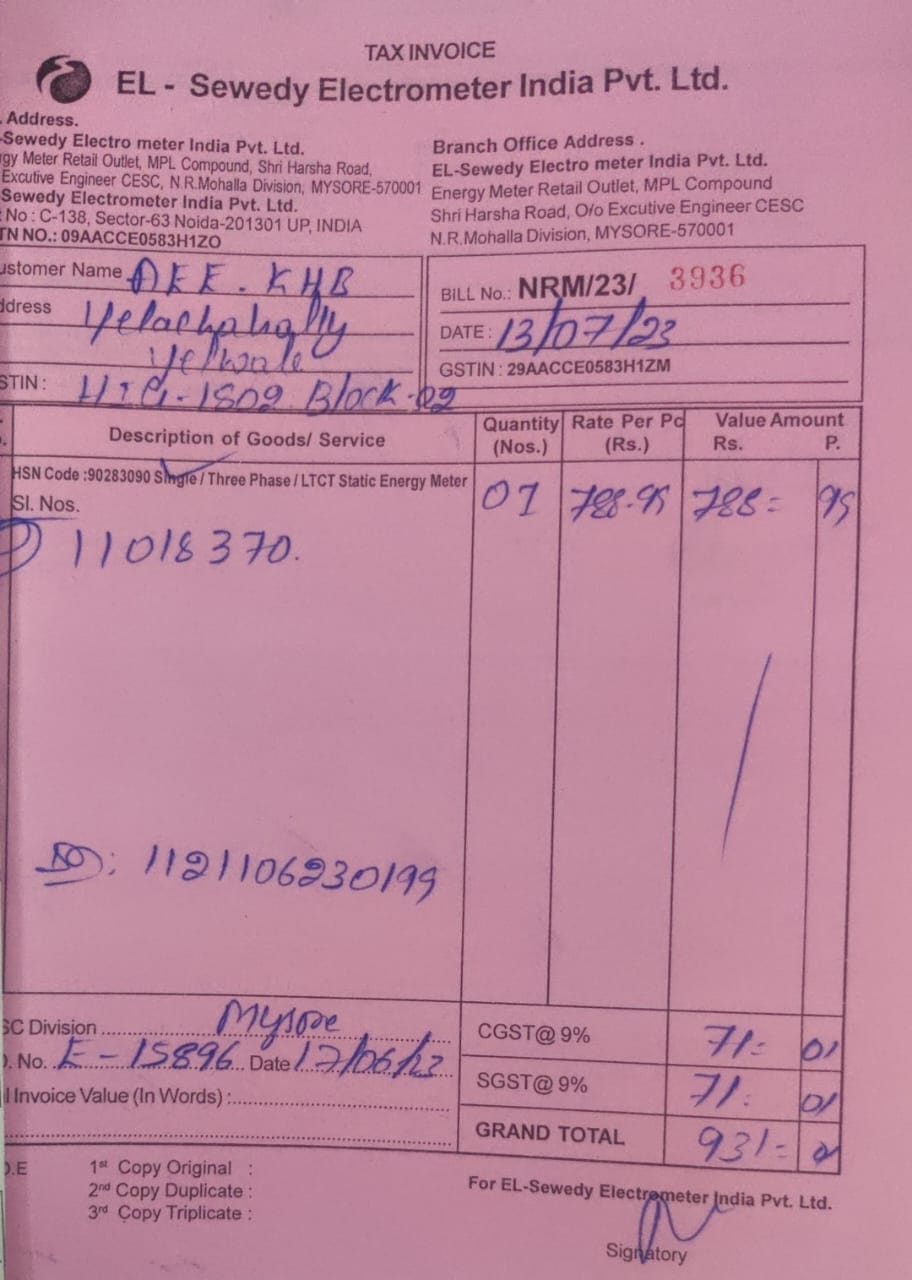 TAX INVOICE
EL - Sewedy Electrometer India Pvt. Ltd.
Address.
-Sewedy Electro meter India Pvt. Ltd.
gy Meter Retail Outlet, MPL Compound, Shri Harsha Road,
Excutive Engineer CESC, N.R.Mohalla Division, MYSORE-570001
Sewedy Electrometer India Pvt. Ltd.
No : C-138, Sector-63 Noida-201301 UP, INDIA
TN NO.: 09AACCE0583H1ZO
Branch Office Address .
EL-Sewedy Electro meter India Pvt. Ltd.
Energy Meter Retail Outlet, MPL Compound
Shri Harsha Road, O/o Excutive Engineer CESC
N.R.Mohalla Division, MYSORE-570001
ustomer Name AEE. KHB
ddress Yelachahally
Yelwale
STIN : HIG-1809 Block-02
BILL No.: NRM/23/ 3936
DATE : 13/07/23
GSTIN : 29AACCE0583H1ZM
Description of Goods/ Service Quantity (Nos.) Rate Per Pc (Rs.) Value Amount Rs. P.
HSN Code :90283090 Single / Three Phase / LTCT Static Energy Meter 01 788.95 788= 95
Sl. Nos.
11018370.
: 1121106230199
SC Division Mysore
. No. E-15896 Date 17/06/23
l Invoice Value (In Words) :
CGST@ 9% 71= 01
SGST@ 9% 71. 01
GRAND TOTAL 931=
O.E 1st Copy Original :
2nd Copy Duplicate :
3rd Copy Triplicate :
For EL-Sewedy Electrometer India Pvt. Ltd.
Signatory